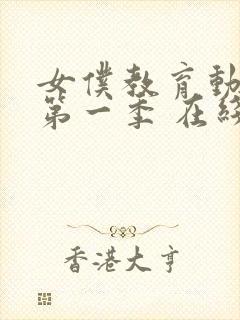 女僕教育動
第一季 在線
香港大亨